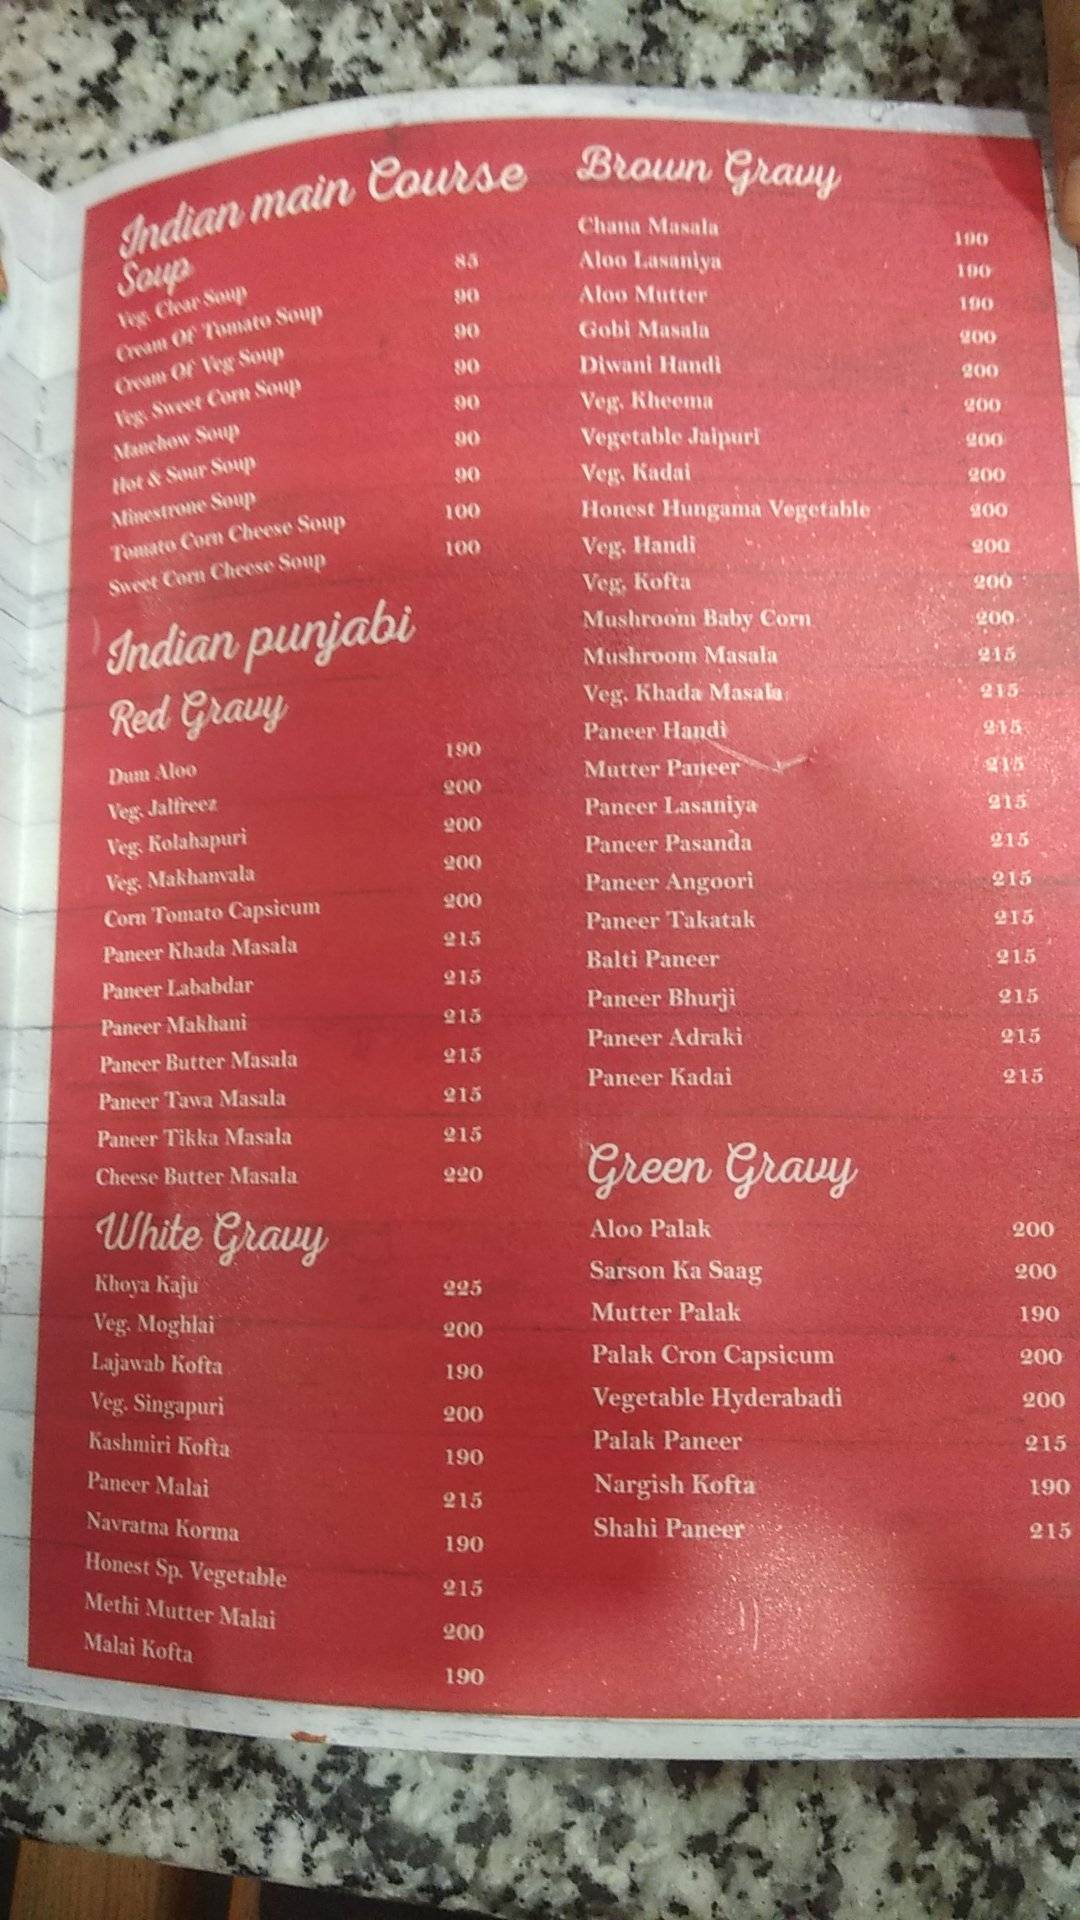 Indian main Course
Soup
Veg. Clear Soup 85
Cream Of Tomato Soup 90
Cream Of Veg Soup 90
Veg. Sweet Corn Soup 90
Manchow Soup 90
Hot & Sour Soup 90
Minestrone Soup 90
Tomato Corn Cheese Soup 100
Sweet Corn Cheese Soup 100
Indian punjabi
Red Gravy
Dum Aloo 190
Veg. Jalfreez 200
Veg. Kolahapuri 200
Veg. Makhanvala 200
Corn Tomato Capsicum 200
Paneer Khada Masala 215
Paneer Lababdar 215
Paneer Makhani 215
Paneer Butter Masala 215
Paneer Tawa Masala 215
Paneer Tikka Masala 215
Cheese Butter Masala 220
White Gravy
Khoya Kaju 225
Veg. Moghlai 200
Lajawab Kofta 190
Veg. Singapuri 200
Kashmiri Kofta 190
Paneer Malai 215
Navratna Korma 190
Honest Sp. Vegetable 215
Methi Mutter Malai 200
Malai Kofta 190
Brown Gravy
Chana Masala 190
Aloo Lasaniya 190
Aloo Mutter 190
Gobi Masala 200
Diwani Handi 200
Veg. Kheema 200
Vegetable Jaipuri 200
Veg. Kadai 200
Honest Hungama Vegetable 200
Veg. Handi 200
Veg. Kofta 200
Mushroom Baby Corn 200
Mushroom Masala 215
Veg. Khada Masala 215
Paneer Handi 215
Mutter Paneer 215
Paneer Lasaniya 215
Paneer Pasanda 215
Paneer Angoori 215
Paneer Takatak 215
Balti Paneer 215
Paneer Bhurji 215
Paneer Adraki 215
Paneer Kadai 215
Green Gravy
Aloo Palak 200
Sarson Ka Saag 200
Mutter Palak 190
Palak Cron Capsicum 200
Vegetable Hyderabadi 200
Palak Paneer 215
Nargish Kofta 190
Shahi Paneer 215